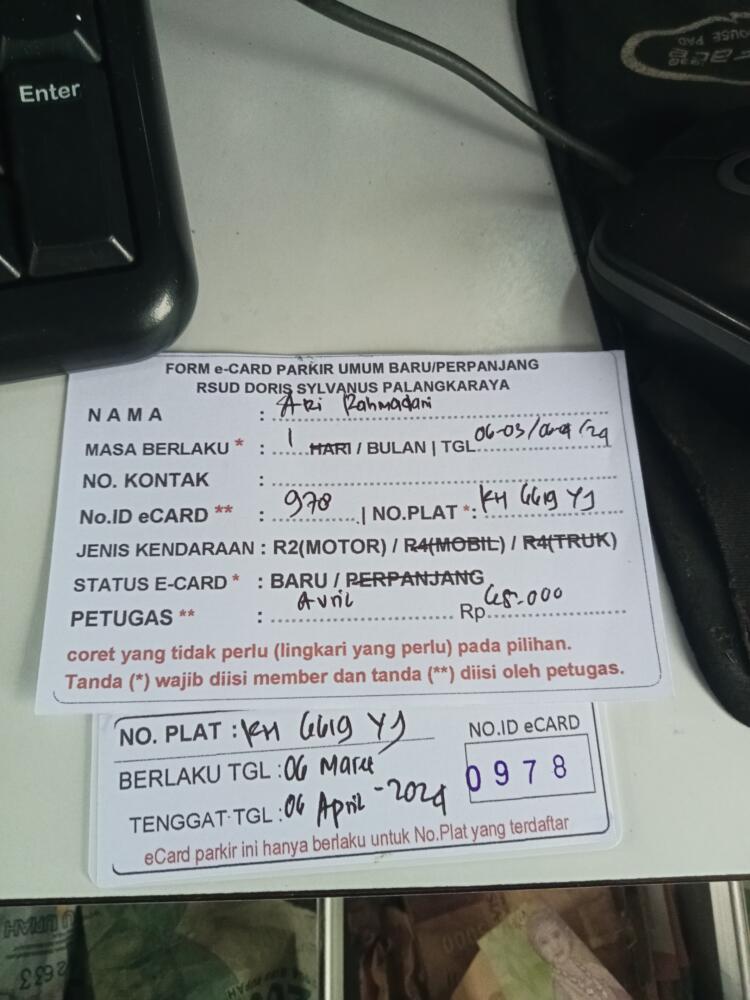 Enter
FACE
MOUSE PAD
FORM e-CARD PARKIR UMUM BARU/PERPANJANG
RSUD DORIS SYLVANUS PALANGKARAYA
NAMA : Ari Rahmadani
MASA BERLAKU * : 1 HARI / BULAN | TGL 06-03/06-04/24
NO. KONTAK :
No.ID eCARD ** : 978 | NO.PLAT *: KH 6619 YJ
JENIS KENDARAAN : R2(MOTOR) / R4(MOBIL) / R4(TRUK)
STATUS E-CARD * : BARU / PERPANJANG
PETUGAS ** : Avril Rp 45.000
coret yang tidak perlu (lingkari yang perlu) pada pilihan.
Tanda (*) wajib diisi member dan tanda (**) diisi oleh petugas.
NO. PLAT : KH 6619 YJ
NO.ID eCARD
BERLAKU TGL : 06 Maret
0978
TENGGAT TGL : 06 April - 2024
eCard parkir ini hanya berlaku untuk No.Plat yang terdaftar